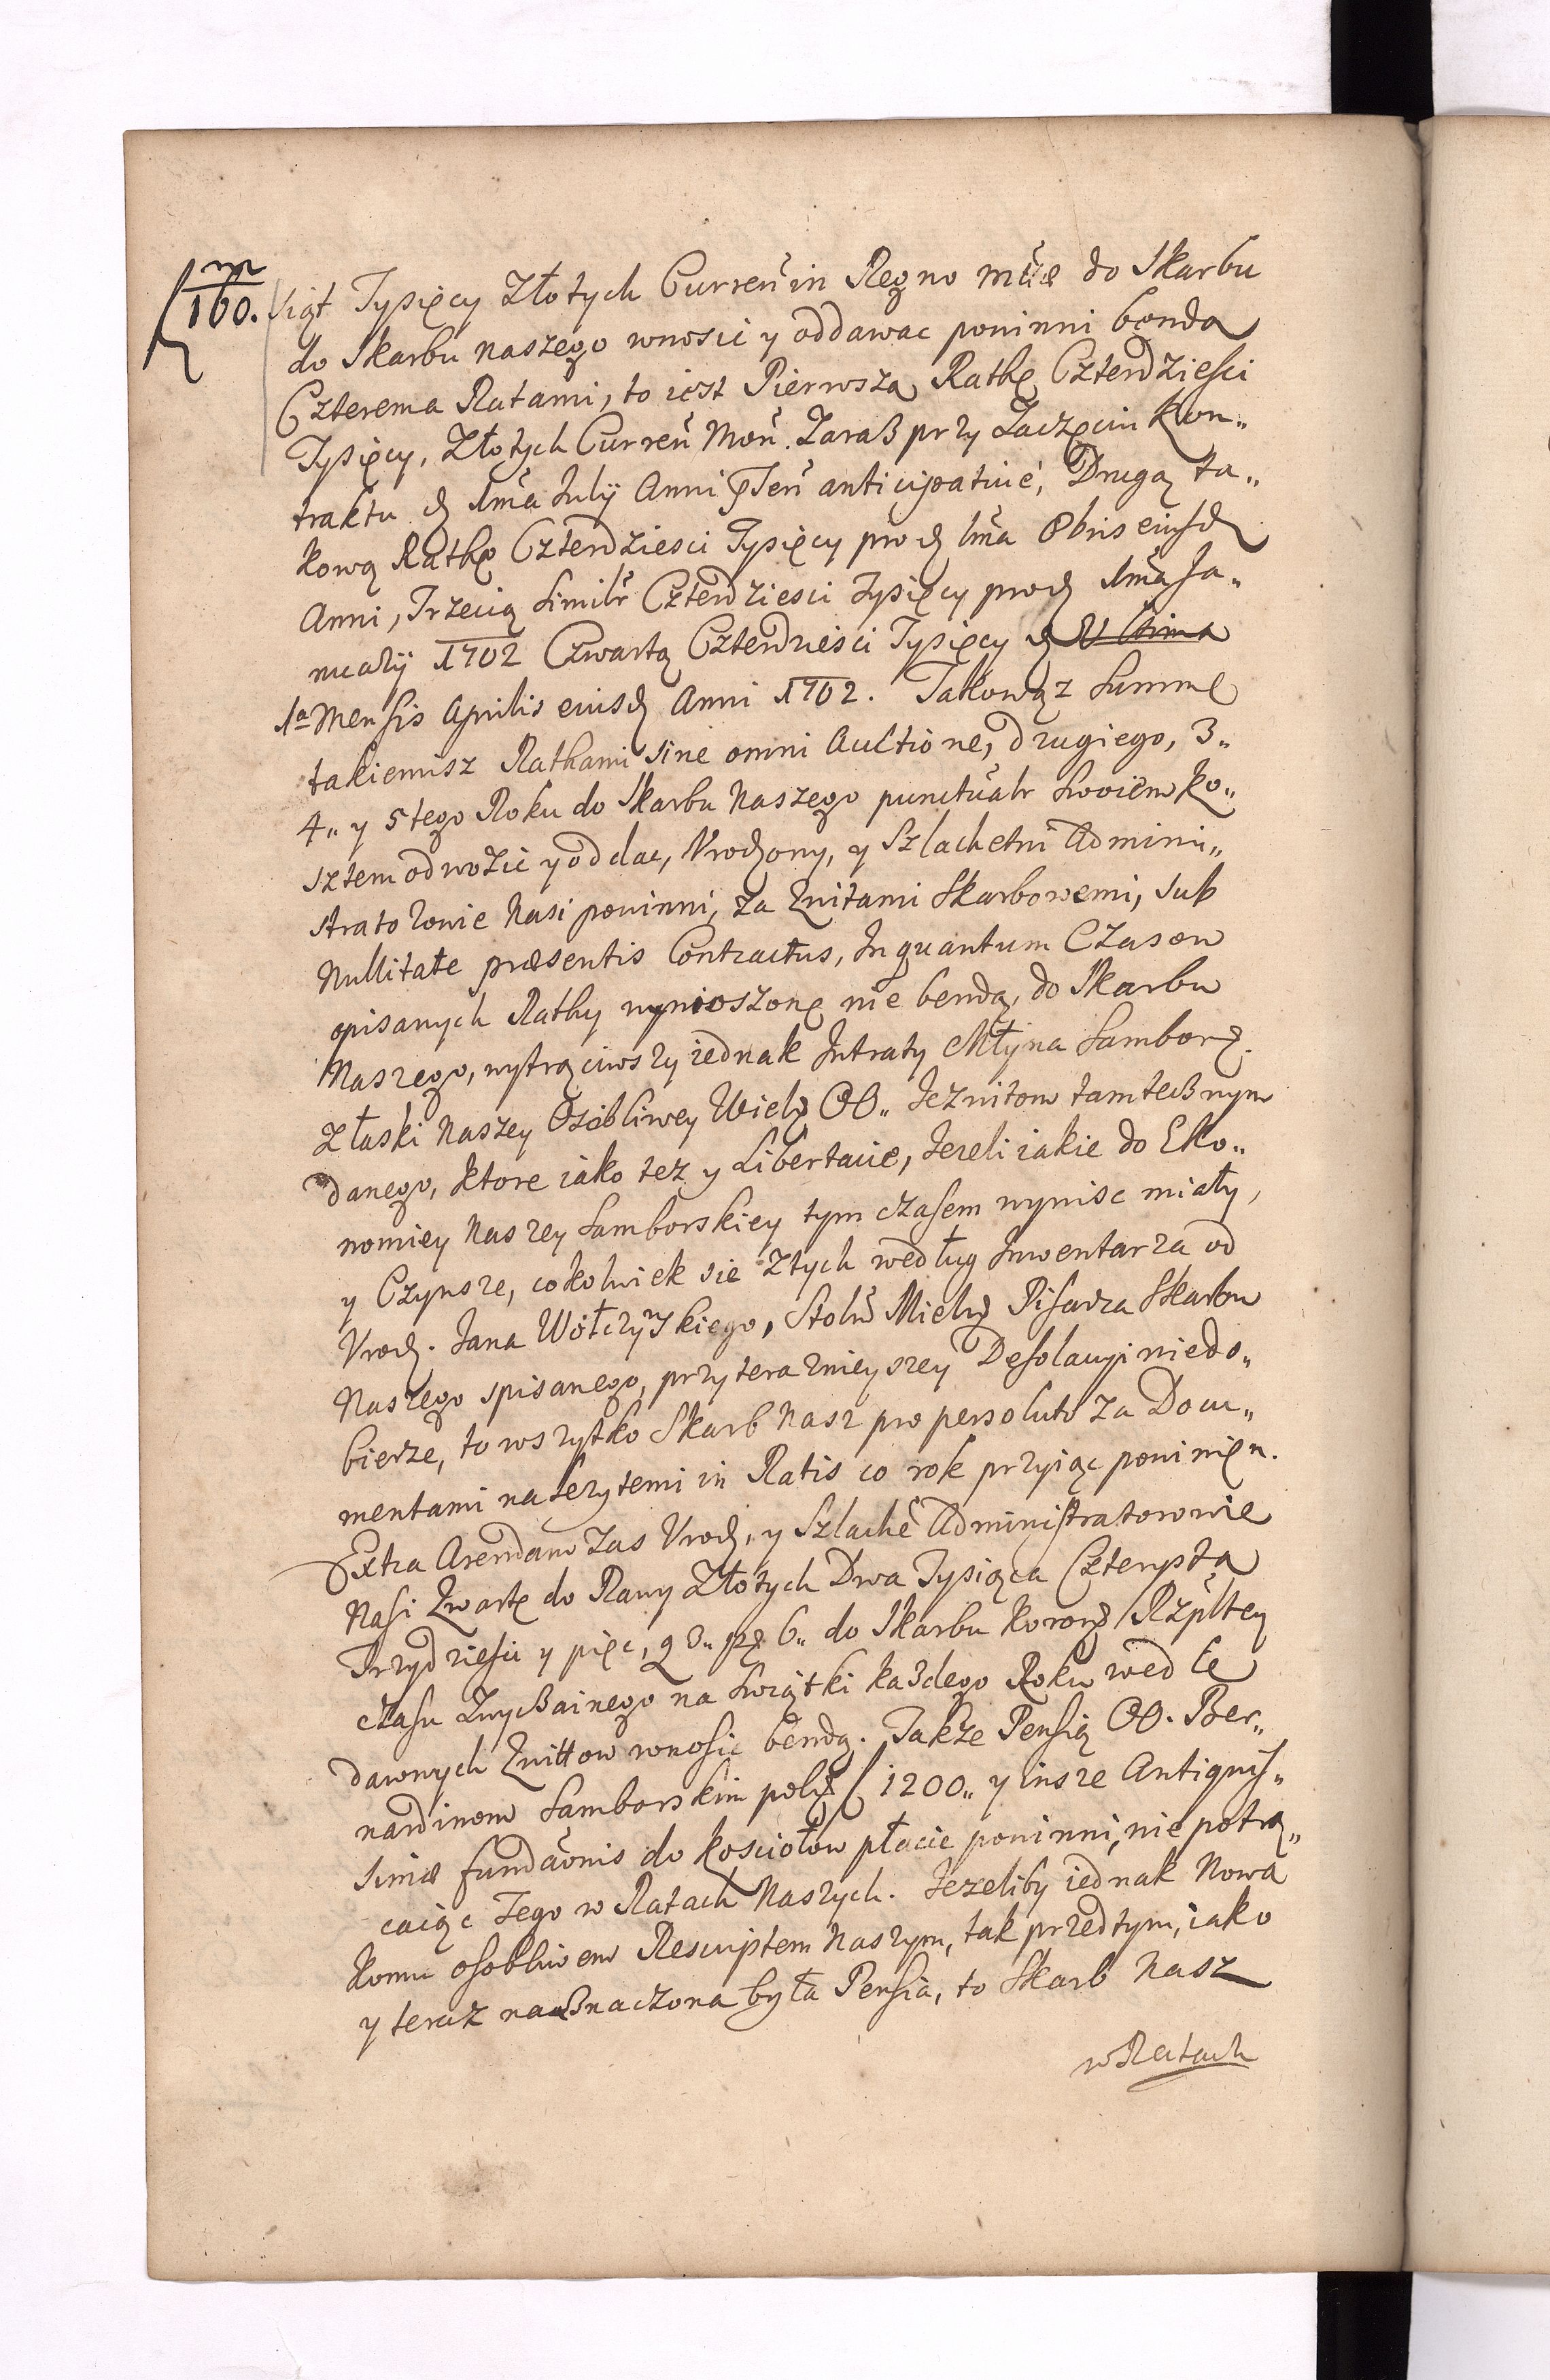 m
160.
siąt Tysięcy Złotych Curreñ in Regno mtæ do Skarbu
do Skarbu naszego wnosić y oddawac powinni bęndą
Czterema Ratami, to iest Pierwszą Rathę Czterdziesci
Tysięcy, Złotych Curreñ Moñ. Zaraß przy Zaczęciu Kon„
traktu d 1ma Julÿ Anni pñseñ anticipative, Drugą ta„
kową Rathę Czterdziesci Tysięcy pro d 1ma 8bris eiusd
Anni, Trzecią Similr Czterdziesci Tysięcy pro d 1ma Ja„
nuarÿ 1702 Czwartą Czterdziesci Tysięcy d Ultima
1a Mensis Aprilis eiusd Anni 1702. Takowąz Summę
takiemisz Rathami sine omni Auctione, drugiego, 3„
4„ y 5tego Roku do Skarbu Naszego punctualr swoiem ko„
sztem odwozic y oddac, Urodzony, y Szlachetni Admini„
stratorowie Nasi powinni, za Quitami Skarbowemi, sub
Nullitate præsentis Contractus, Inquantum Czasow
opisanych Rathy wynioszonę nie bendą, do Skarbu
Naszego, wytrąciwszy iednak Intraty Młyna Sambors.
Złaski Naszey Osobliwey Wiel OO„ Jezuitow tamteßnym
danego, ktore iako tez y Libertacie, Jezeli iakie do Eko„
nomiey Naszey Samborskiey tym czasem wynisc miały,
y Czynsze, cokolwiek sie ztych według Inwentarza od
Urod. Jana Wołczyskiego, Stoln Miel Pisarza Skarbu
Naszego spisanego, przy teraznieyszey Desolacyi niedo„
bierze, to wszytko Skarb Nasz pro persoluto za Docu„
mentami nalezytemi in Ratis co rok przyiąc powinięn.
Extra Arendam zas Urod, y Szlache Administratorowie
Nasi Quartę do Rawy Złotych Dwa Tysiąca Czterysta
Trzydziesci y pięc, g 3„ 6„ do Skarbu Koron Rzpltey
czasu Zwyßainego na Swiątki kazdego Roku wedle
dawnych Quittow wnosic bendą. Takze Pensią OO. Ber„
nardinom Samborskim 1200„ y insze Antiquis„
simæ fundaõnis do kosciołow płacic powinni, nie potrą„
caiąc Tego w Ratach Naszych. Jezeliby iednak Nowa
komu osobliwem Rescriptem Naszym, tak przedtym, iako
y teraz naßnaczona była Pensia, to Skarb Nasz
w Ratach